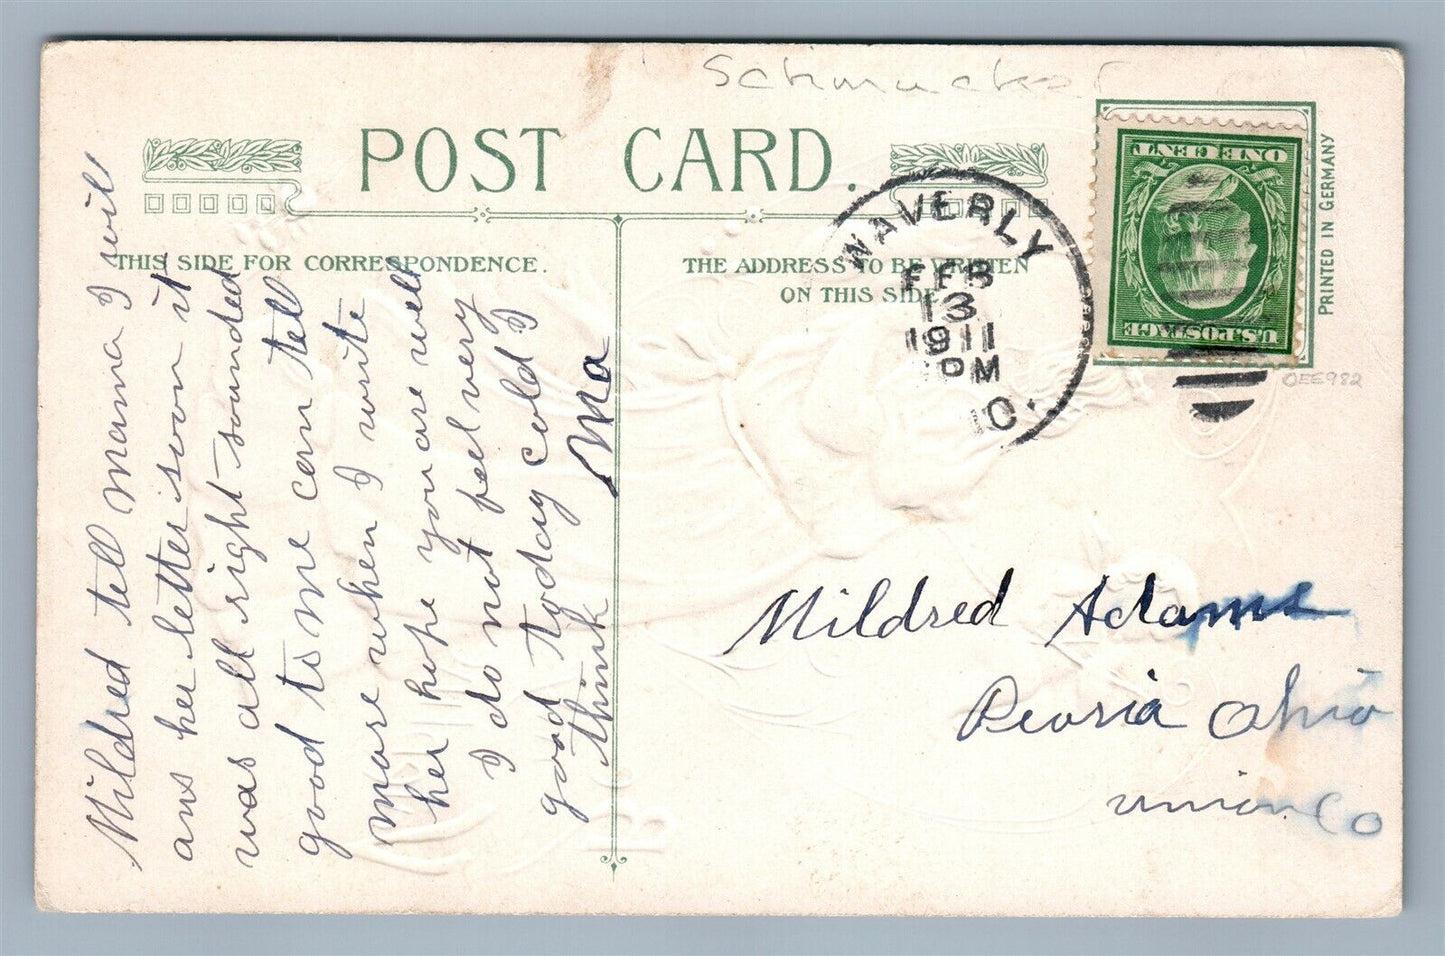 Schmucker
POST CARD.
THIS SIDE FOR CORRESPONDENCE.
THE ADDRESS TO BE WRITTEN
ON THIS SIDE
WAVERLY
FEB
13
1911
PM
O.
ONE CENT
U.S. POSTAGE
PRINTED IN GERMANY
OEE982
Mildred tell mama I will
ans her letter soon it
was all right sounded
good to me can tell
more when I write
her hope you are well
I do not feel very
good today cold I
think Ma
Mildred Adams
Peoria Ohio
union Co